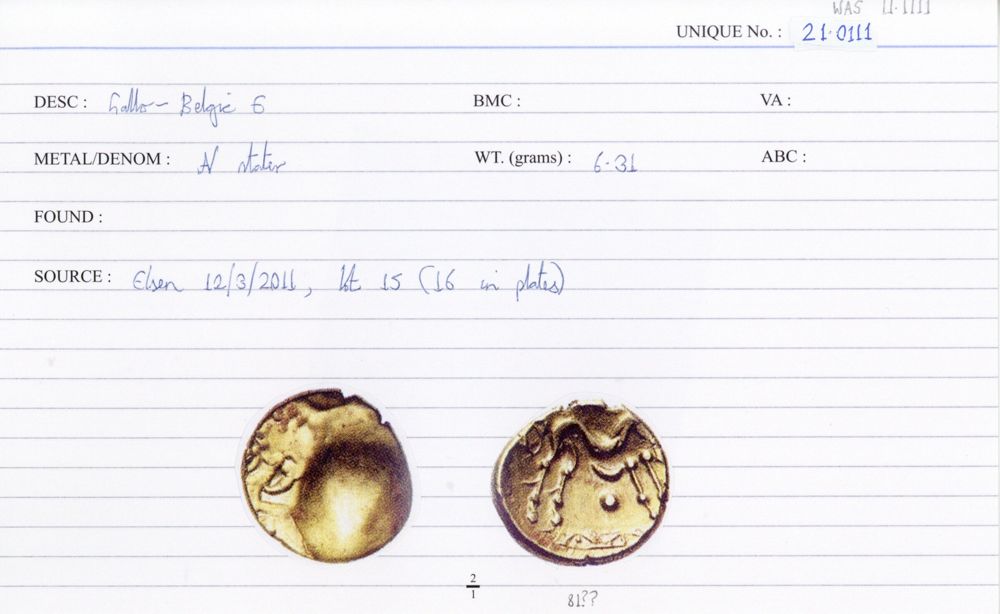 WAS 11.1111
UNIQUE No. : 21.0111
DESC : Gallo-Belgic E BMC : VA :
METAL/DENOM : AV stater WT. (grams) : 6.31 ABC :
FOUND :
SOURCE : Elsen 12/3/2011, lot 15 (16 in plates)
2
1
81??